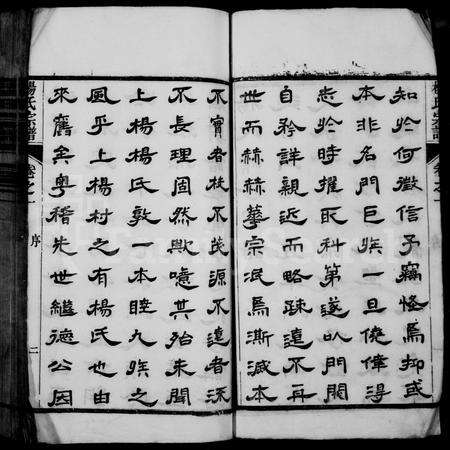 知於何徵信予竊怪焉抑或
本非名門巨族一旦僥倖淂
志於時擢取科第遂以門閥
自矜詳親近而略疎遠不再
世而赫赫華宗泯焉澌滅本
不實者枝不茂源不遠者流
不長理固然歟噫其殆未聞
上楊楊氏敦一本睦九族之
風乎上楊村之有楊氏也由
來舊矣粵稽先世繼德公因
楊氏宗譜
卷之一
序
二
楊氏宗譜
卷之一